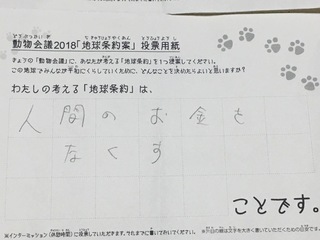 動物会議2018「地球条約案」投票用紙
きょうの「動物会議」に、あなたが考える「地球条約」を1つ提案してください。
この地球でみんなが平和にくらしていくために、どんなことを決めたらよいと思いますか?
わたしの考える「地球条約」は、
人間のお金を
なくす
ことです。
※インターミッション(休憩時間)に投票していただきます。それまでに書いておいてください。